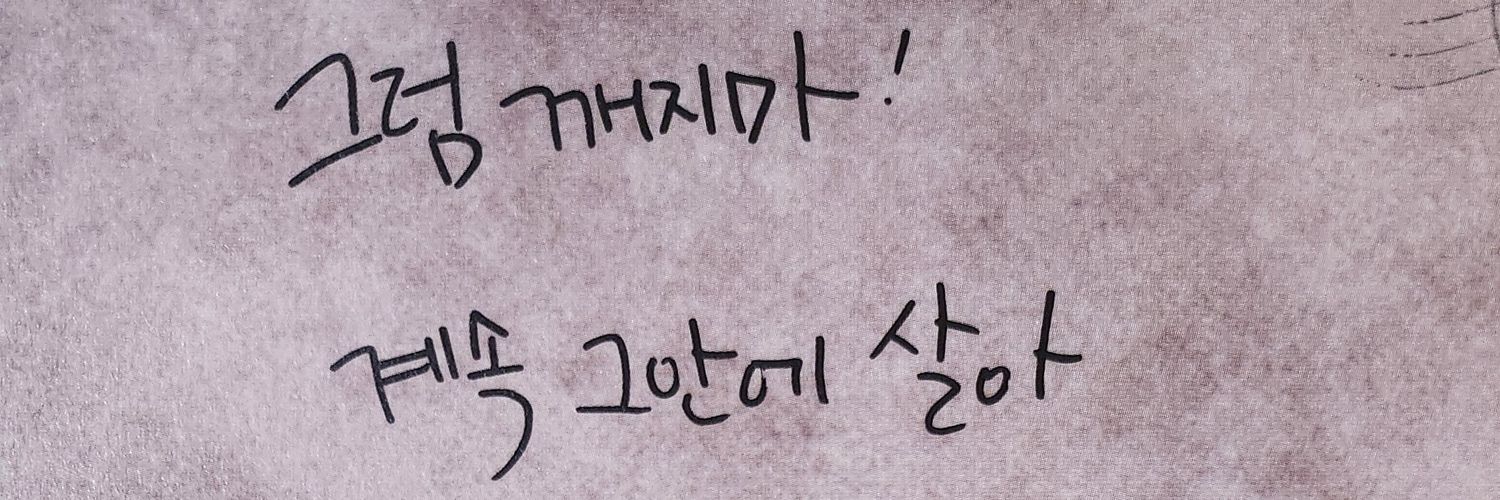 그럼 깨지마!
계속 그안에 살아